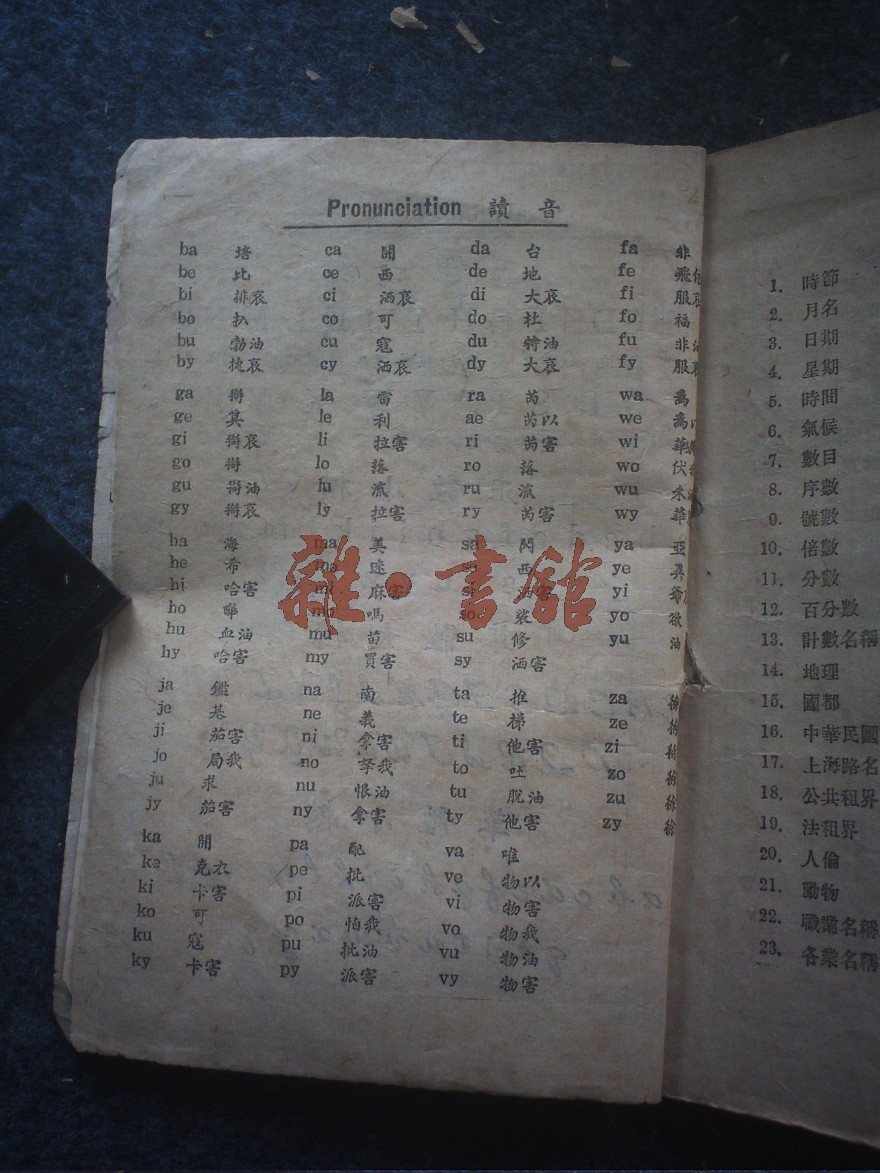 Pronunciation 讀音
ba 培 ca 開 da 台 fa 非
be 比 ce 西 de 地 fe 飛
bi 排哀 ci 洒哀 di 大哀 fi 服
bo 扒 co 可 do 杜 fo 福
bu 勃油 cu 寇 du 特油 fu 非油
by 捱哀 cy 洒哀 dy 大哀 fy 服哀
ga la 雷 ra 芮 wa 爲
ge 其 le 利 ae 芮以 we 爲以
gi 哀 li 拉害 ri 芮害 wi 華
go lo 落 ro 落 wo 伏
gu 油 lu 流 ru 流 wu 未
gy 哀 ly 拉害 ry 芮害 wy 華
ha 海 ma 美 sa 閃 ya 亞
he 希 迷 西 ye 異
hi 哈害 麻害 洒害 yi 爷
ho 嗎 裟 yo 欲
hu 血油 mu 苗 su 修 yu 油
hy 哈害 my 買害 sy 洒害
ja 鑑 na 南 ta 推 za
je 基 ne 義 te 梯 ze
ji 茄害 ni 拿害 ti 他害 zi
jo 局我 no 拏我 to 吐 zo
ju 求 nu 恨油 tu 脫油 zu
jy 茄害 ny 拿害 ty 他害 zy
ka 開 pa 配 va 唯
ke 克衣 pe 批 ve 物以
ki 卡害 pi 派害 vi 物害
ko 可 po 怕我 vo 物我
ku 寇 pu 批油 vu 物油
ky 卡害 py 派害 vy 物害
雜·書館
1. 時節
2. 月名
3. 日期
4. 星期
5. 時間
6. 氣候
7. 數目
8. 序數
9. 號數
10. 倍數
11. 分數
12. 百分數
13. 計數名稱
14. 地理
15. 國都
16. 中華民國
17. 上海路名
18. 公共租界
19. 法租界
20. 人倫
21. 動物
22. 職業名稱
23. 各業名稱